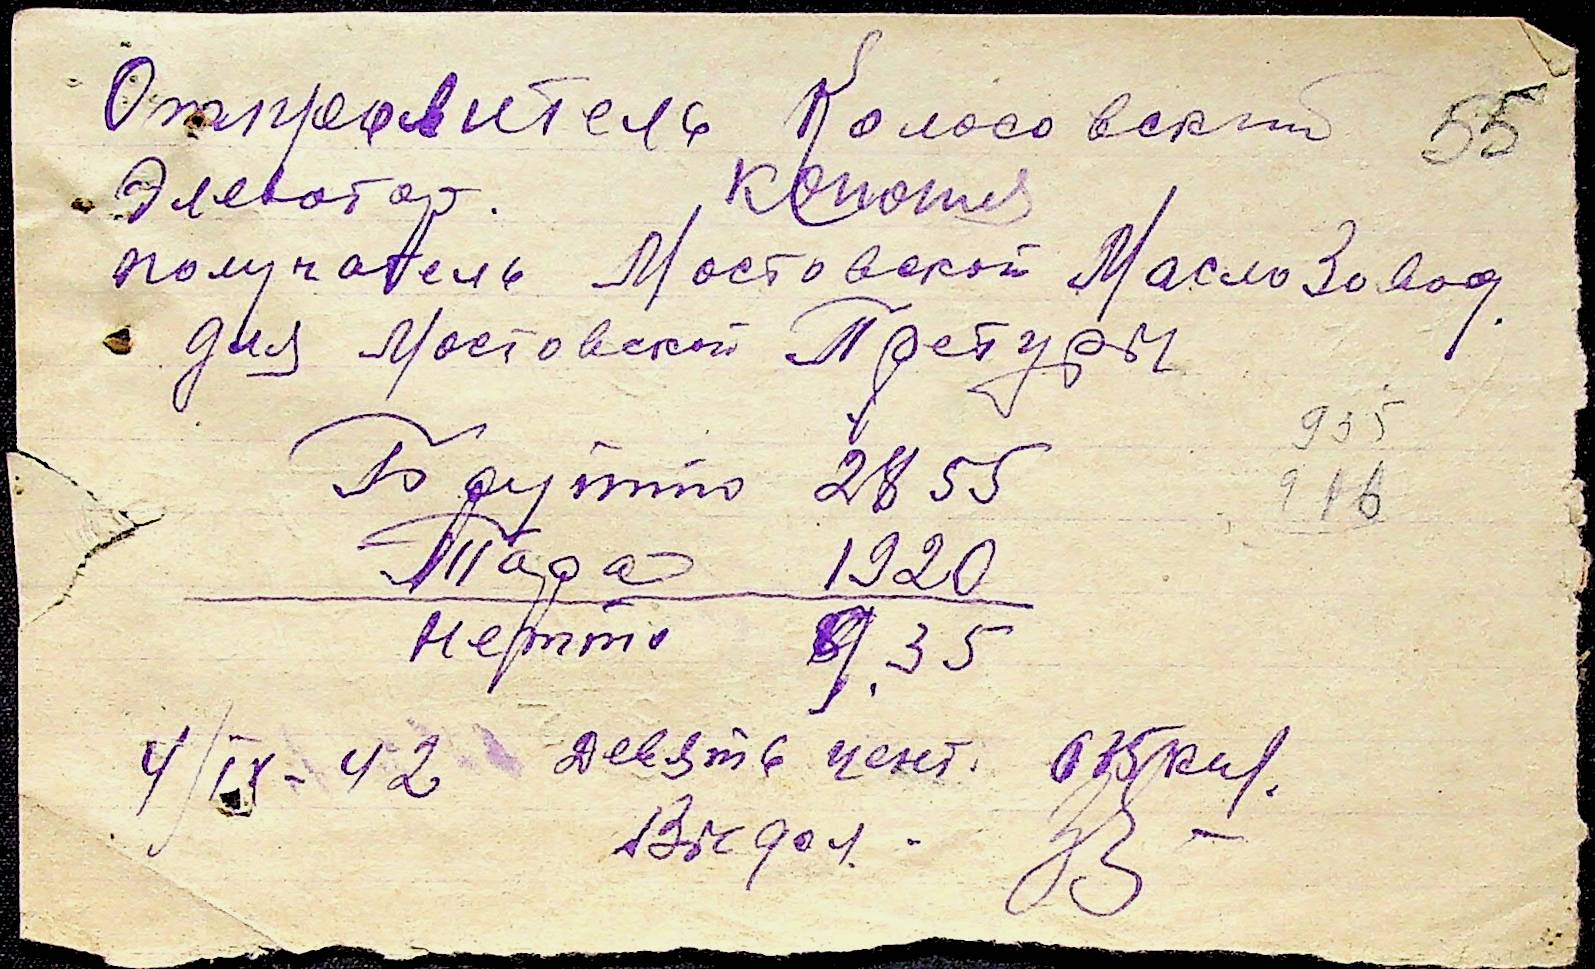 Отправитель Колосовский 55
Элеватор. Конопля
получатель Мостовской Маслозавод.
для Мостовской Претуры
Брутто 2855
Тара 1920
Нетто 9.35
935
916
4/IX-42 Девять цент. 035 кил.
Выдал.